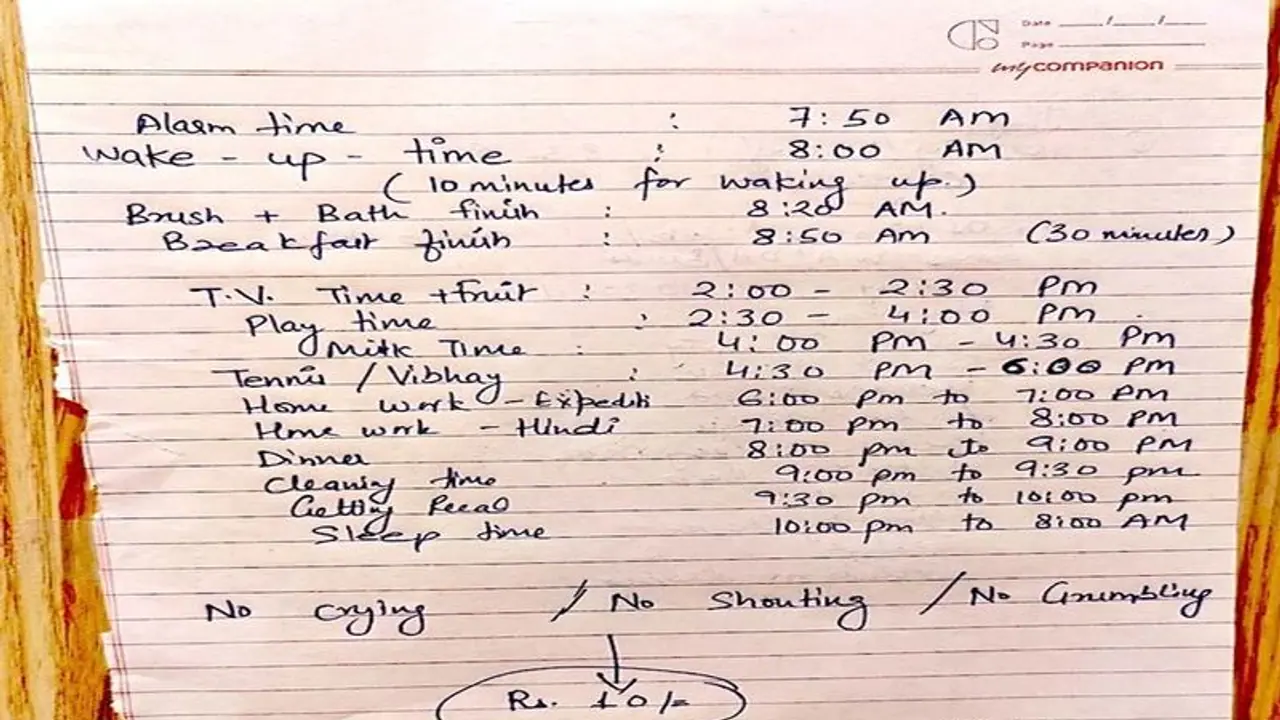 Date / /
Page
mycompanion
Alarm time : 7:50 AM
Wake - up - time : 8:00 AM
(10 minutes for waking up.)
Brush + Bath finish : 8:20 AM.
Breakfast finish : 8:50 AM (30 minutes)
T.V. Time + fruit : 2:00 - 2:30 PM
Play time : 2:30 - 4:00 PM
Milk Time : 4:00 PM - 4:30 PM
Tennis / Vibhay : 4:30 PM - 6:00 PM
Home work - 6:00 pm to 7:00 PM
Home work - Hindi 7:00 pm to 8:00 PM
Dinner 8:00 pm to 9:00 PM
Cleaning time 9:00 pm to 9:30 pm
Getting 9:30 pm to 10:00 pm
Sleep time 10:00 pm to 8:00 AM
No Crying / No Shouting / No Grumbling
Rs. 10/=